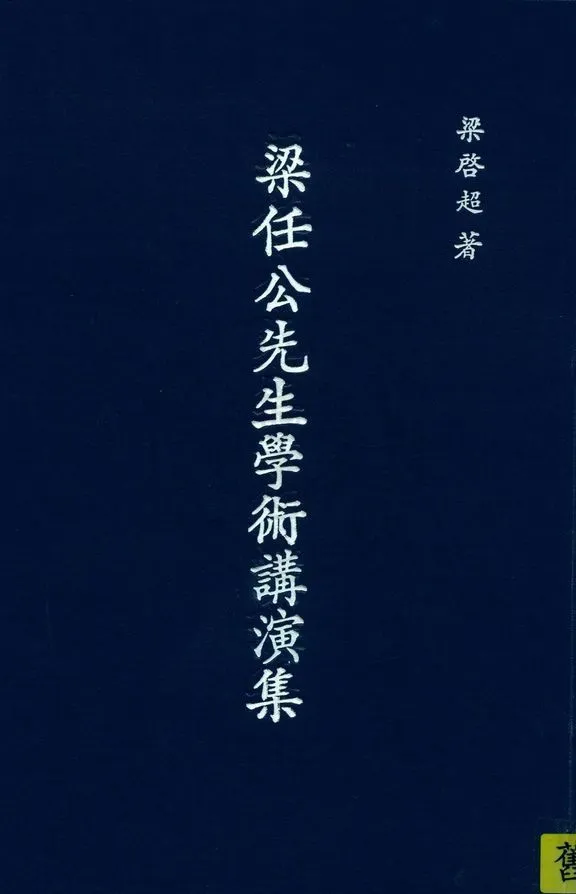 梁啓超 著
梁任公先生學術講演集
舊